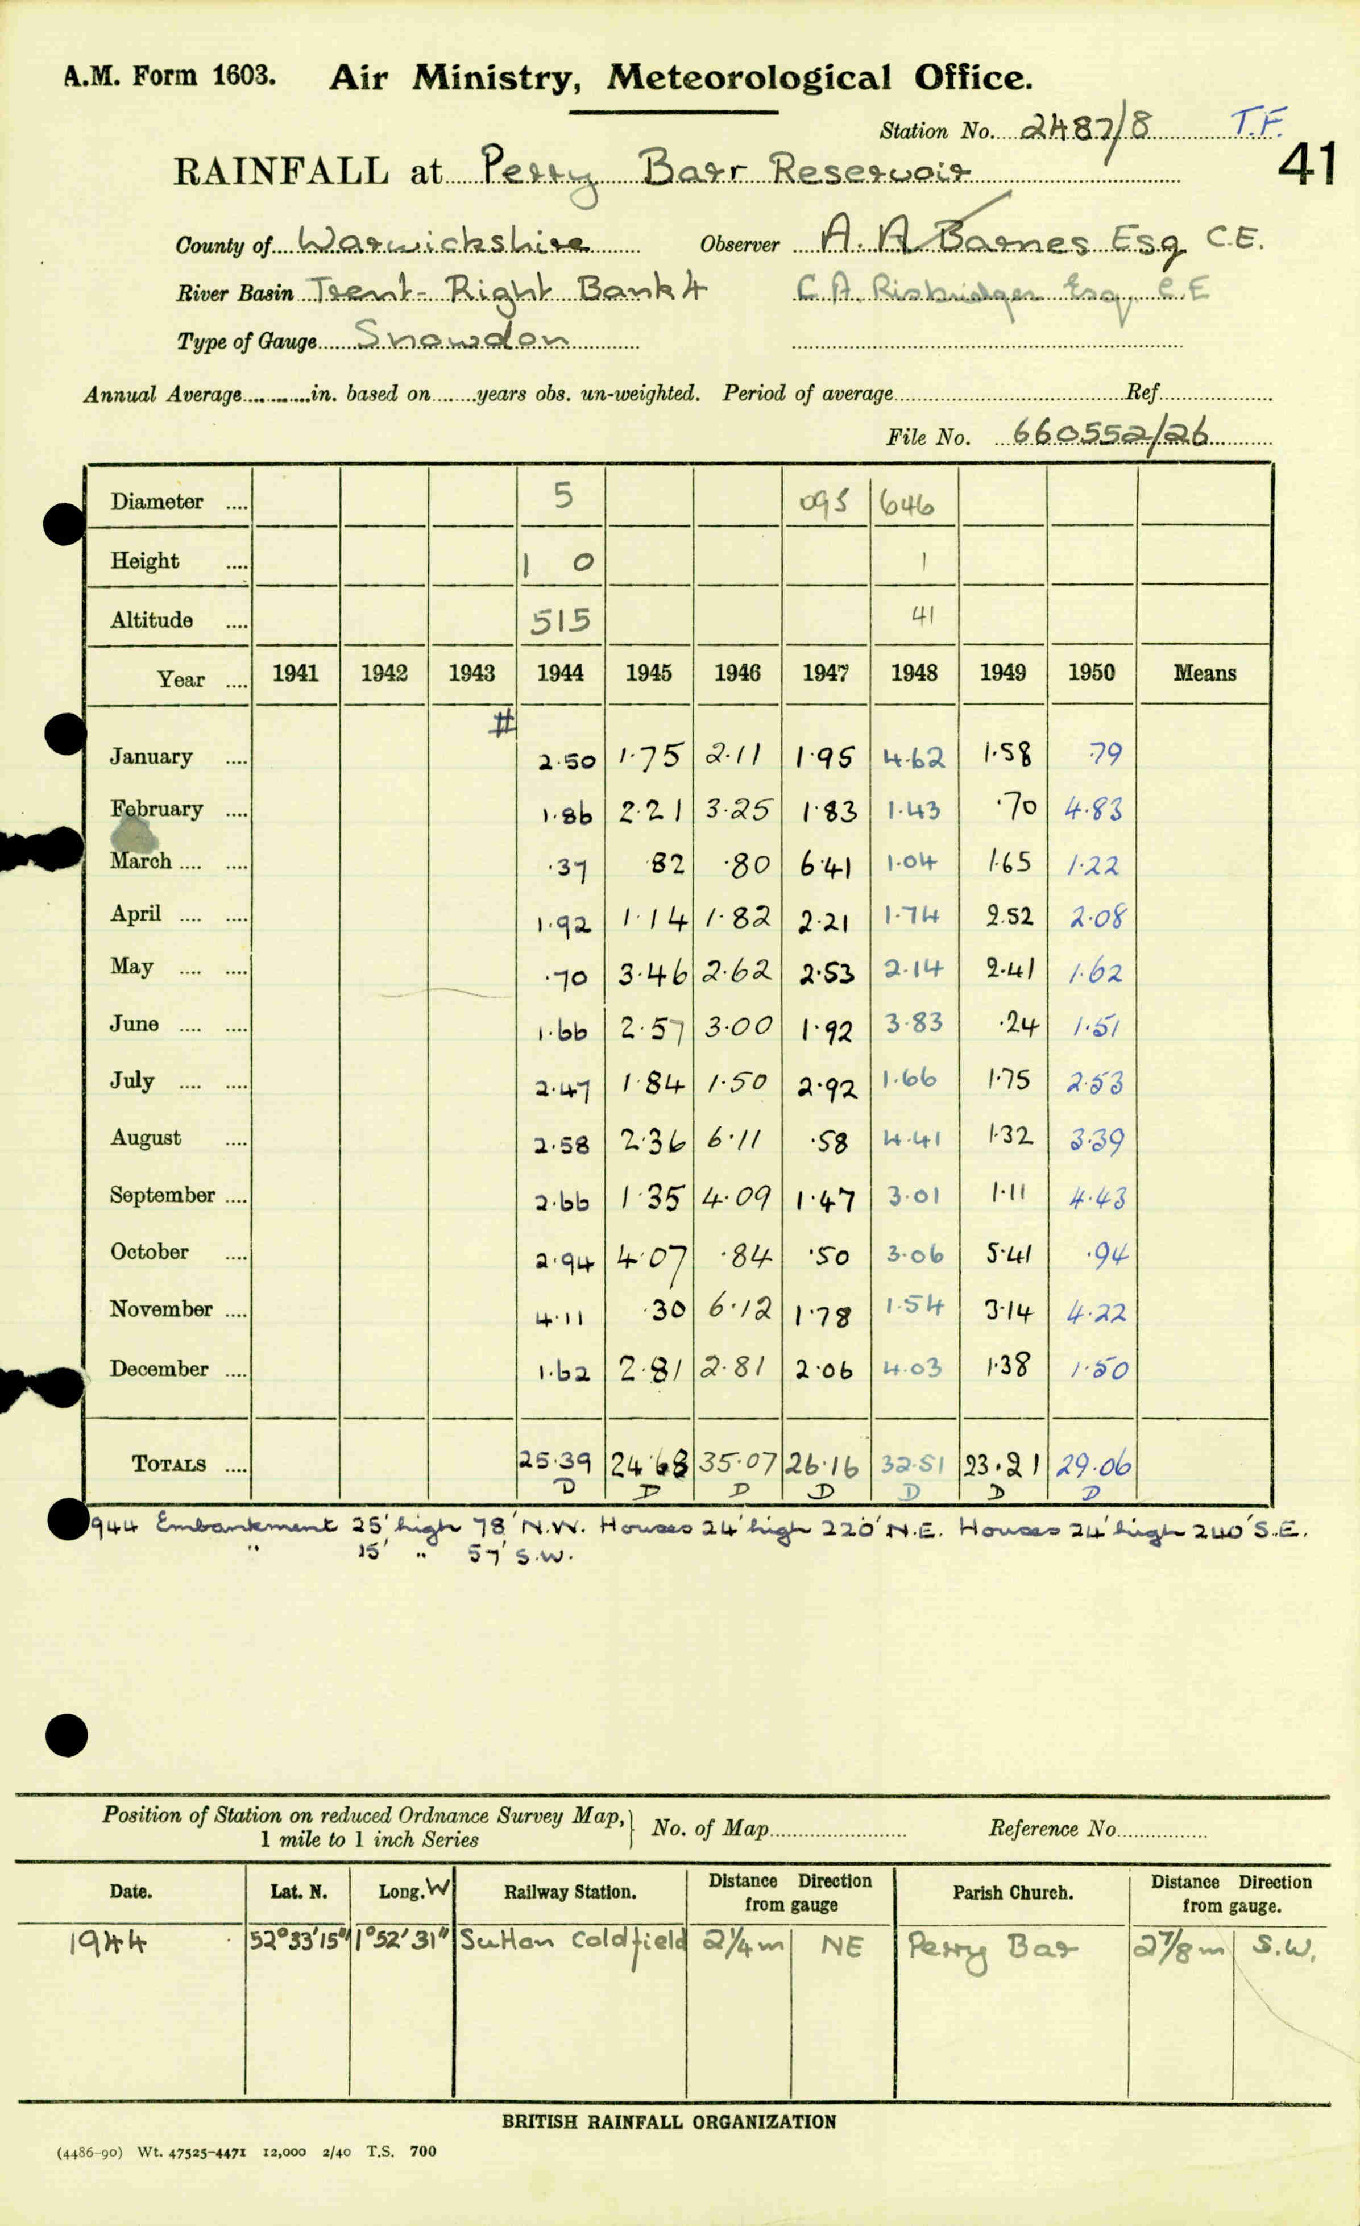 A.M. Form 1603. Air Ministry, Meteorological Office.
Station No. 2487/8 T.F.
41
RAINFALL at Perry Barr Reservoir
County of Warwickshire Observer A. A Barnes Esq C.E.
River Basin Trent- Right Bank 4 C.A. Risbridger Esq. C.E
Type of Gauge Snowdon
Annual Average in. based on years obs. un-weighted. Period of average Ref.
File No. 660552/26
Diameter 5 095 646
Height 1 0 1
Altitude 515 41
Year 1941 1942 1943 1944 1945 1946 1947 1948 1949 1950 Means
#
January 2.50 1.75 2.11 1.95 4.62 1.58 .79
February 1.86 2.21 3.25 1.83 1.43 .70 4.83
March .37 .82 .80 6.41 1.04 1.65 1.22
April 1.92 1.14 1.82 2.21 1.74 2.52 2.08
May .70 3.46 2.62 2.53 2.14 2.41 1.62
June 1.66 2.57 3.00 1.92 3.83 .24 1.51
July 2.47 1.84 1.50 2.92 1.66 1.75 2.53
August 2.58 2.36 6.11 .58 4.41 1.32 3.39
September 2.66 1.35 4.09 1.47 3.01 1.11 4.43
October 2.94 4.07 .84 .50 3.06 5.41 .94
November 4.11 .30 6.12 1.78 1.54 3.14 4.22
December 1.62 2.81 2.81 2.06 4.03 1.38 1.50
TOTALS 25.39 24.68 35.07 26.16 32.51 23.21 29.06
D D D D D D D
944 Embankment 25' high 78' N.W. Houses 24' high 220' N.E. Houses 24' high 240' S.E.
" 15' " 57' S.W.
Position of Station on reduced Ordnance Survey Map, 1 mile to 1 inch Series No. of Map Reference No.
Date. Lat. N. Long. W Railway Station. Distance Direction from gauge Parish Church. Distance Direction from gauge.
1944 52°33'15" 1°52'31" Sutton Coldfield 2¼ m NE Perry Bar 2⅞ m S.W.
BRITISH RAINFALL ORGANIZATION
(4486-90) Wt. 47525-4471 12,000 2/40 T.S. 700